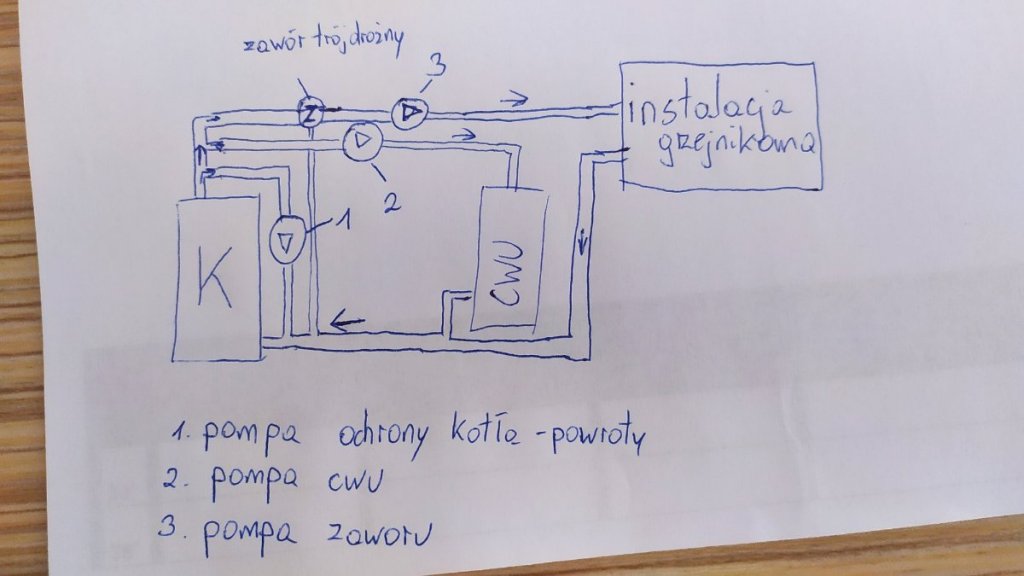 zawór trójdrożny
3
instalacja
grzejnikowa
2
1
K
CWU
1. pompa ochrony kotła - powroty
2. pompa cwu
3. pompa zaworu